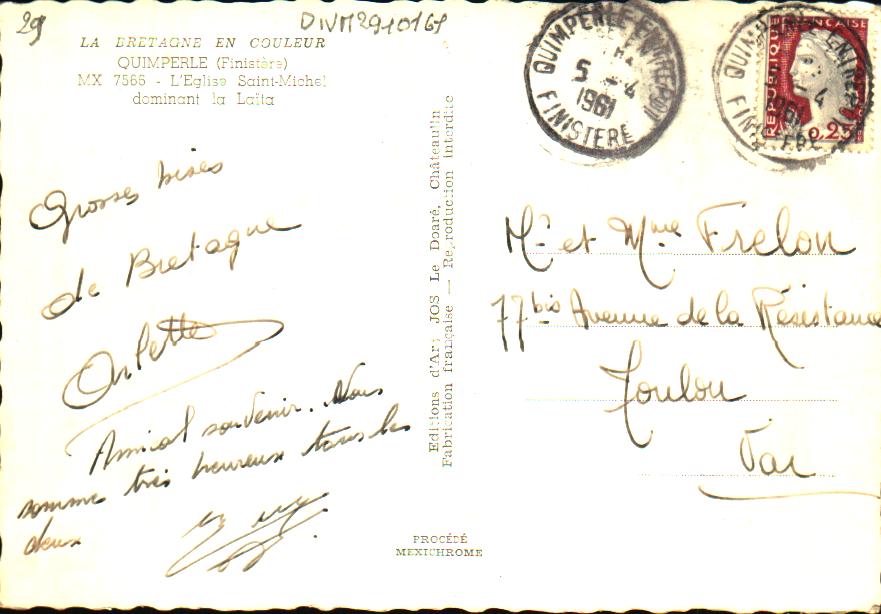 29
DIVM2910169
LA BRETAGNE EN COULEUR
QUIMPERLE (Finistère)
MX 7566 - L'Eglise Saint-Michel
dominant la Laïta
Grosses bises
de Bretagne
Arlette
Amical souvenir. Nous
somme très heureux tous les
deux
Editions d'Art JOS Le Doaré, Châteaulin
Fabrication française — Reproduction interdite
PROCÉDÉ
MEXICHROME
QUIMPERLE ENTREPOT
5 4
1961
FINISTERE
QUIMPERLE ENTREPOT
4
1961
FINISTERE
REPUBLIQUE FRANÇAISE
0,25
Mr et Mme Frelon
77bis Avenue de la Résistance
Toulon
Var